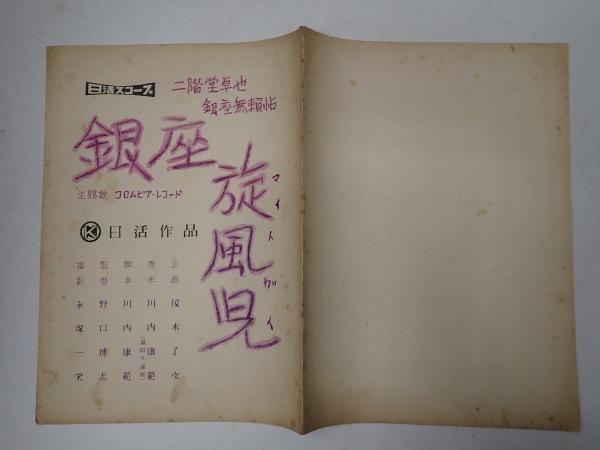 日活スコープ
二階堂卓也
銀座無頼帖
銀座
旋風児
マイトガイ
主題歌 コロムビア・レコード
日活作品
企画 茂木了次
原作 川内康範
脚本 川内康範
監督 野口博志
撮影 永塚一栄